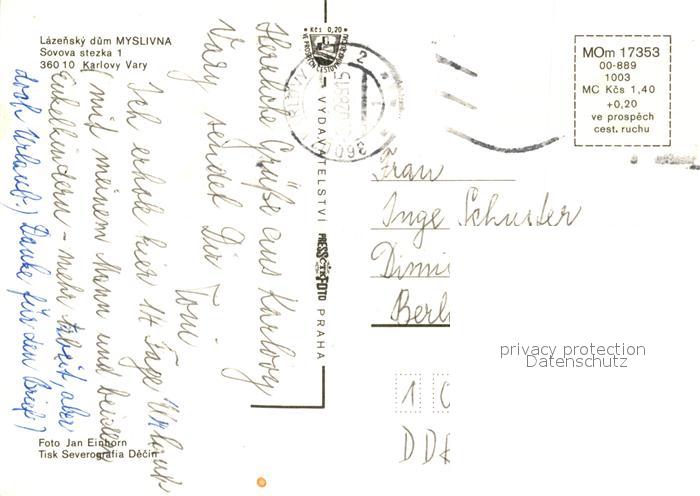 Lázeňský dům MYSLIVNA
Sovova stezka 1
360 10 Karlovy Vary
Herrliche Grüße aus Karlovy
Vary sendet Dir Toni
Ich erhole hier 14 Tage Urlaub
(mit meinem Mann und beiden
Enkelkindern - mehr Arbeit, aber
doch Urlaub.) Danke für den Brief!)
Foto Jan Einhorn
Tisk Severografia Děčín
Kčs 0,20
VYDAVATELSTVÍ PRESSFOTO PRAHA
MOm 17353
00-889
1003
MC Kčs 1,40
+0,20
ve prospěch
cest. ruchu
Frau
Inge Schuster
Dimi
Berl
1 0
DDR
privacy protection
Datenschutz